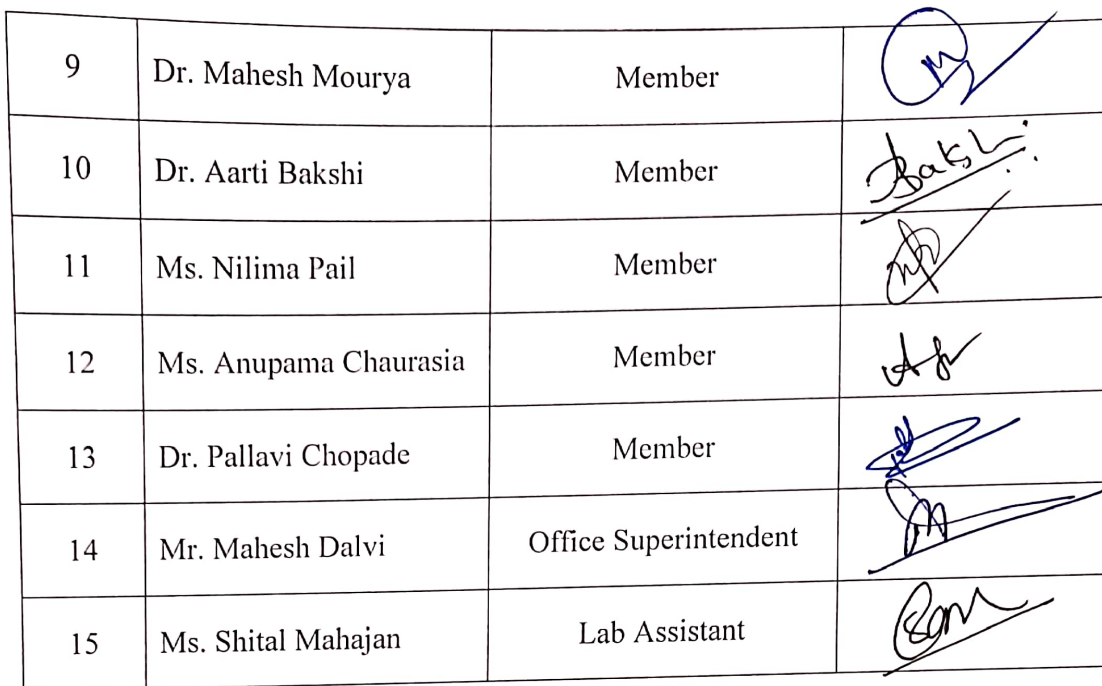 9 Dr. Mahesh Mourya Member
10 Dr. Aarti Bakshi Member Bakshi
11 Ms. Nilima Pail Member
12 Ms. Anupama Chaurasia Member
13 Dr. Pallavi Chopade Member
14 Mr. Mahesh Dalvi Office Superintendent
15 Ms. Shital Mahajan Lab Assistant